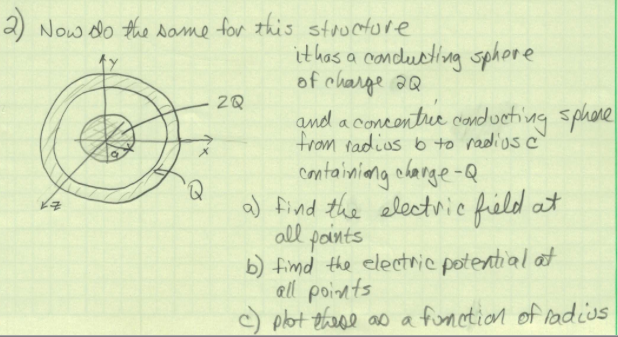 2) Now do the same for this structure
it has a conducting sphere
of charge 2Q
and a concentric conducting sphere
from radius b to radius c
containing charge -Q
y
2Q
x
a
Q
z
a) find the electric field at
all points
b) find the electric potential at
all points
c) plot these as a function of radius